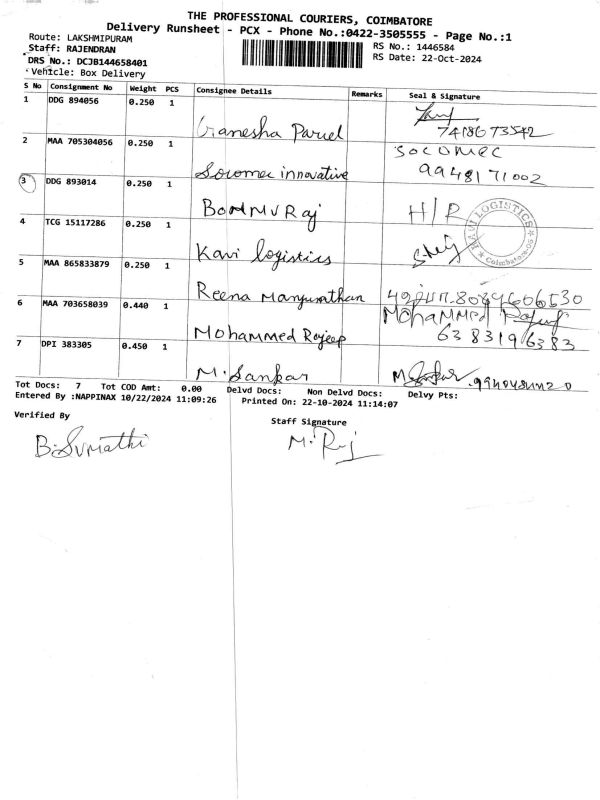 THE PROFESSIONAL COURIERS, COIMBATORE
Delivery Runsheet - PCX - Phone No.:0422-3505555 - Page No.:1
Route: LAKSHMIPURAM
Staff: RAJENDRAN
DRS No.: DCJB144658401
Vehicle: Box Delivery
RS No.: 1446584
RS Date: 22-Oct-2024
S No Consignment No Weight PCS Consignee Details Remarks Seal & Signature
1 DDG 894056 0.250 1
Ganesha Parcel 7418673542
2 MAA 705304056 0.250 1 SOCOMEC
Socomec innovative 9948171002
3 DDG 893014 0.250 1
Raj H/R
KAVI LOGISTICS
Coimbatore
4 TCG 15117286 0.250 1
Kavi logistics
5 MAA 865833879 0.250 1
Reena Manjunathan
6 MAA 703658039 0.440 1 Mohammed
Mohammed Rajeep 6383196383
7 DPI 383305 0.450 1
M. Sankar M Sankar
Tot Docs: 7 Tot COD Amt: 0.00 Delvd Docs: Non Delvd Docs: Delvy Pts:
Entered By :NAPPINAX 10/22/2024 11:09:26 Printed On: 22-10-2024 11:14:07
Verified By Staff Signature
B. Sumathi M. Raj